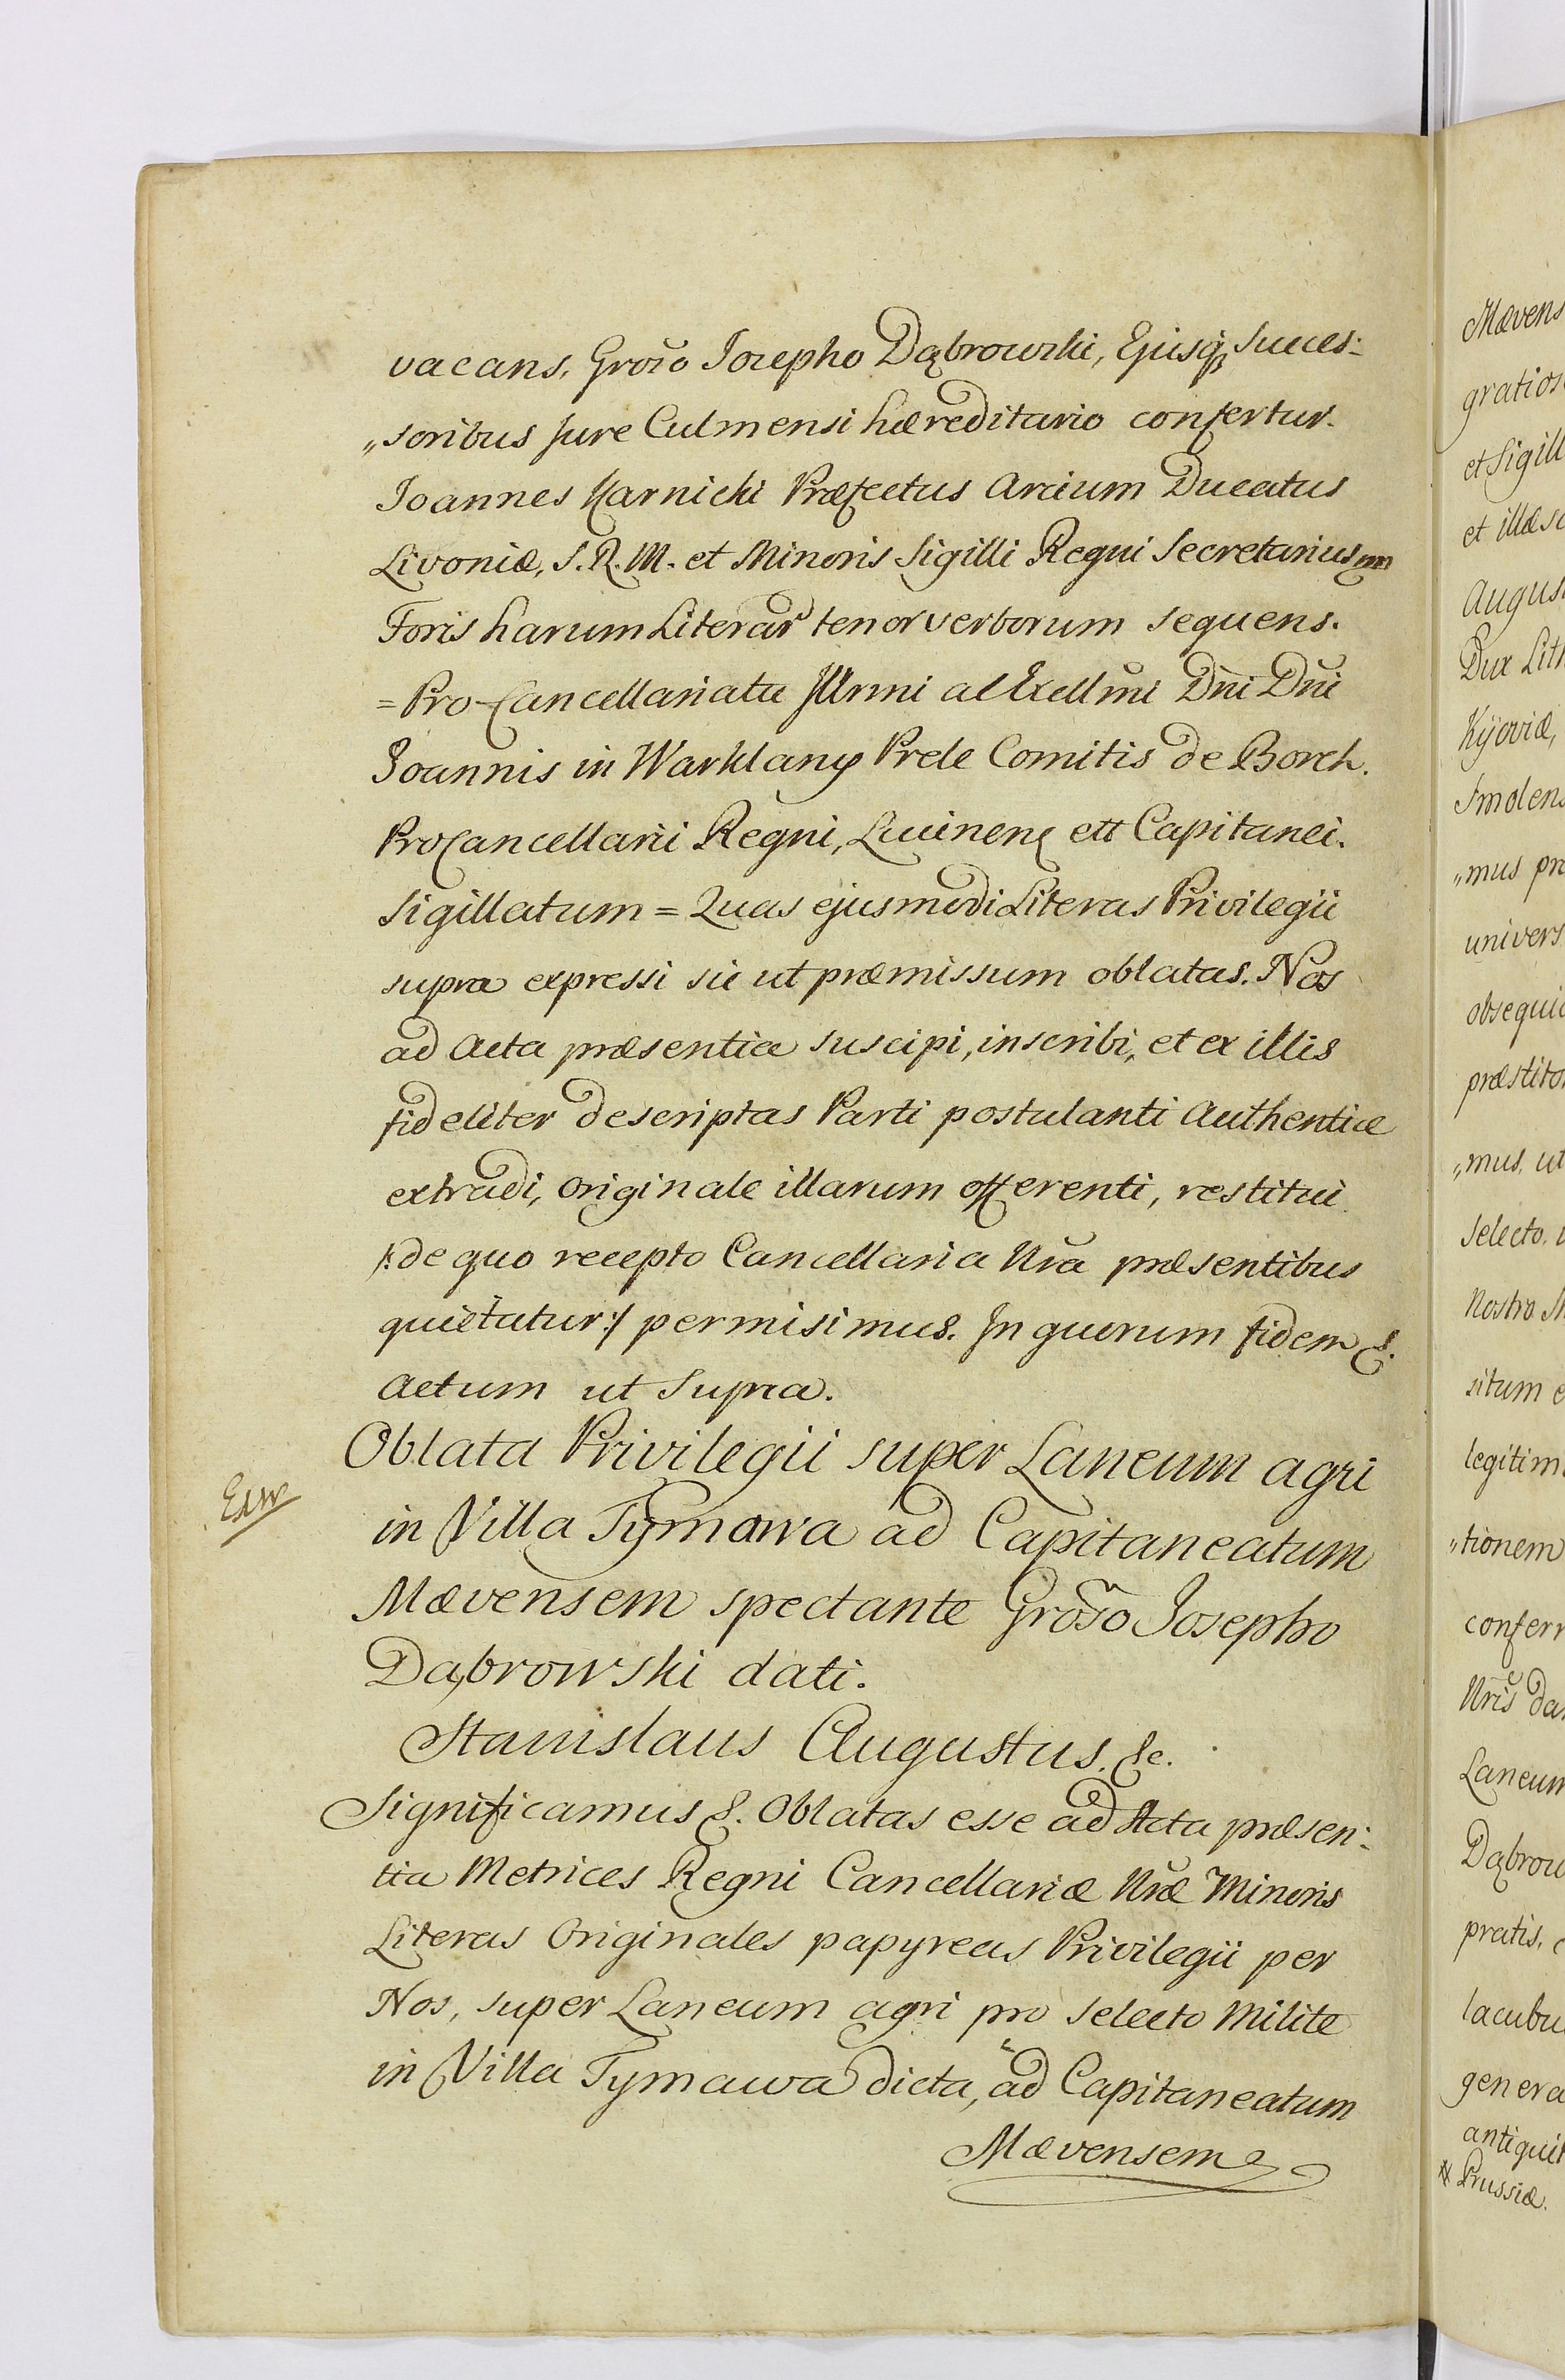 vacans, Groso Josepho Dąbrowski, Ejusq succes-
„soribus Jure Culmensi hæreditario confertur.
Joannes Karnicki Præfectus Arcium Ducatus
Livoniæ, S. R. M. et Minoris Sigilli Regni Secretarius mp
Foris harum Literar tenor verborum sequens.
= Pro-Cancellariatu Illrmi ac Excellmi Dni Dni
Joannis in Warklany Prele Comitis de Borch.
ProCancellarii Regni, Lucinens ett Capitanei.
Sigillatum = Quas ejusmodi Literas Privilegii
supra expressi sic ut præmissum oblatas. Nos
ad Acta præsentia suscipi, inscribi, et ex illis
fideliter descriptas Parti postulanti Authentice
extradi, originale illarum offerenti, restitui
/: de quo recepto Cancellaria Nra præsentibus
quietatur :/ permisimus. In quorum fidem &.
Actum ut Supra.
Oblata Privilegii super Laneum agri
in Villa Tymawa ad Capitaneatum
Mævensem spectante Groso Josepho
Dąbrowski dati.
Stanislaus Augustus. &c.
Significamus &. Oblatas esse ad Acta præsen-
tia Metrices Regni Cancellariæ Nræ Minoris
Literas Originales papyreas Privilegii per
Nos, super Laneum agri pro Selecto Milite
in Villa Tymawa dicta, ad Capitaneatum
Mævensem
Mævens
gratios
et Sigill
et illæs
August
Dux Lith
Kijoviæ,
Smolens
„mus pr
univers
obsequi
præstito
„mus, ut
Selecto,
Nostro
situm e
legitim
„tionem
conferr
Nris da
Laneum
Dąbrow
pratis,
lacubu
genera
antiquit
# Prussiæ.